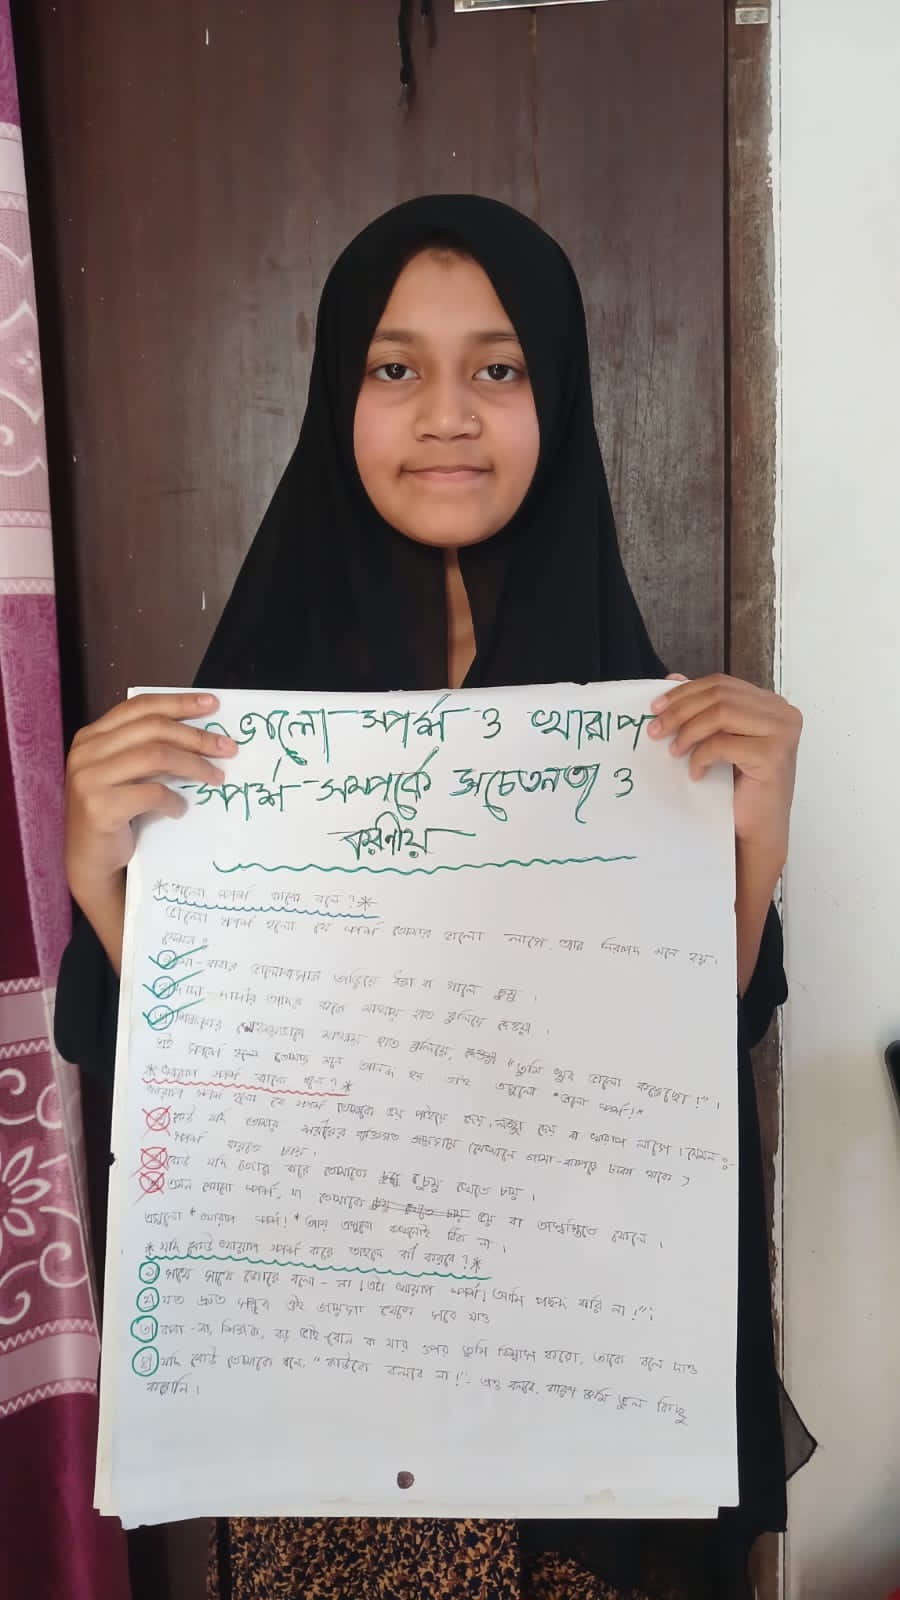 ভালো স্পর্শ ও খারাপ
স্পর্শ সম্পর্কে সচেতনতা ও
করণীয়
* ভালো স্পর্শ কাকে বলে? *
ভালো স্পর্শ হলো যে স্পর্শ তোমার ভালো লাগে, আর নিরাপদ মনে হয়।
যেমন :
মা-বাবার ভালোবাসার জড়িয়ে ধরা বা গালে চুমু।
দাদা-দাদীর আদর করে মাথায় হাত বুলিয়ে দেওয়া।
শিক্ষকের মাথায় হাত বুলিয়ে, "তুমি খুব ভালো করেছো!"।
এই স্পর্শে হলে তোমার মনে আনন্দ হয় তাই এগুলো "ভালো স্পর্শ!"
* খারাপ স্পর্শ কাকে বলে? *
খারাপ স্পর্শ হলো যে স্পর্শ তোমাকে ভয় পাইয়ে দেয়, লজ্জা দেয় বা খারাপ লাগে। যেমন :-
কেউ যদি তোমার শরীরের ব্যক্তিগত জায়গায় যেখানে জামা-কাপড়ে ঢাকা থাকে)
স্পর্শ করতে চায়।
কেউ যদি জোর করে তোমাকে চুমু খেতে চায়।
এমন কোনো স্পর্শ, যা তোমাকে ভয় বা অস্বস্তিতে ফেলে।
এগুলো "খারাপ স্পর্শ!" আর এগুলো কখনোই ঠিক না।
* যদি কেউ খারাপ স্পর্শ করে তাহলে কী করবে? *
১) সাথে সাথে জোরে বলো - না! এটা খারাপ স্পর্শ! আমি পছন্দ করি না!";
২) যত দ্রুত সম্ভব এই জায়গা থেকে সরে যাও
৩) বাবা-মা, শিক্ষক, বড় ভাই-বোন বা যার ওপর তুমি বিশ্বাস করো, তাকে বলে দাও
৪) যদি কেউ তোমাকে বলে, "কাউকে বলবে না!"- তাও বলবে, কারণ তুমি ভুল কিছু
করোনি।